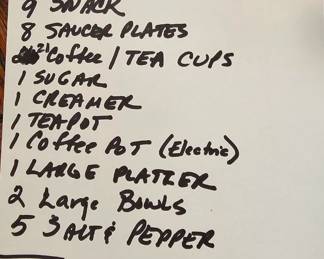 9 SNACK
8 SAUCER PLATES
21 Coffee / TEA CUPS
1 SUGAR
1 CREAMER
1 TEAPOT
1 Coffee POT (Electric)
1 LARGE PLATTER
2 Large BOWLS
5 SALT & PEPPER